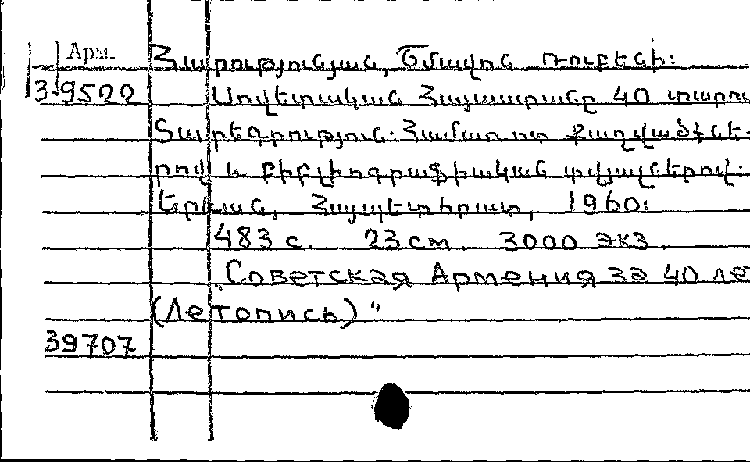 Арм.
Հարությունյան, Շմավոն Ռուբենի:
3-9522
Սովետական Հայաստանը 40 տարու
Տարեգրություն: Համառոտ քաղվածքնե-
րով և բիբլիոգրաֆիական տվյալներով:
Երևան, Հայպետհրատ, 1960:
483 с. 23 см. 3000 экз.
"Советская Армения за 40 ле
(Летопись)"
39707